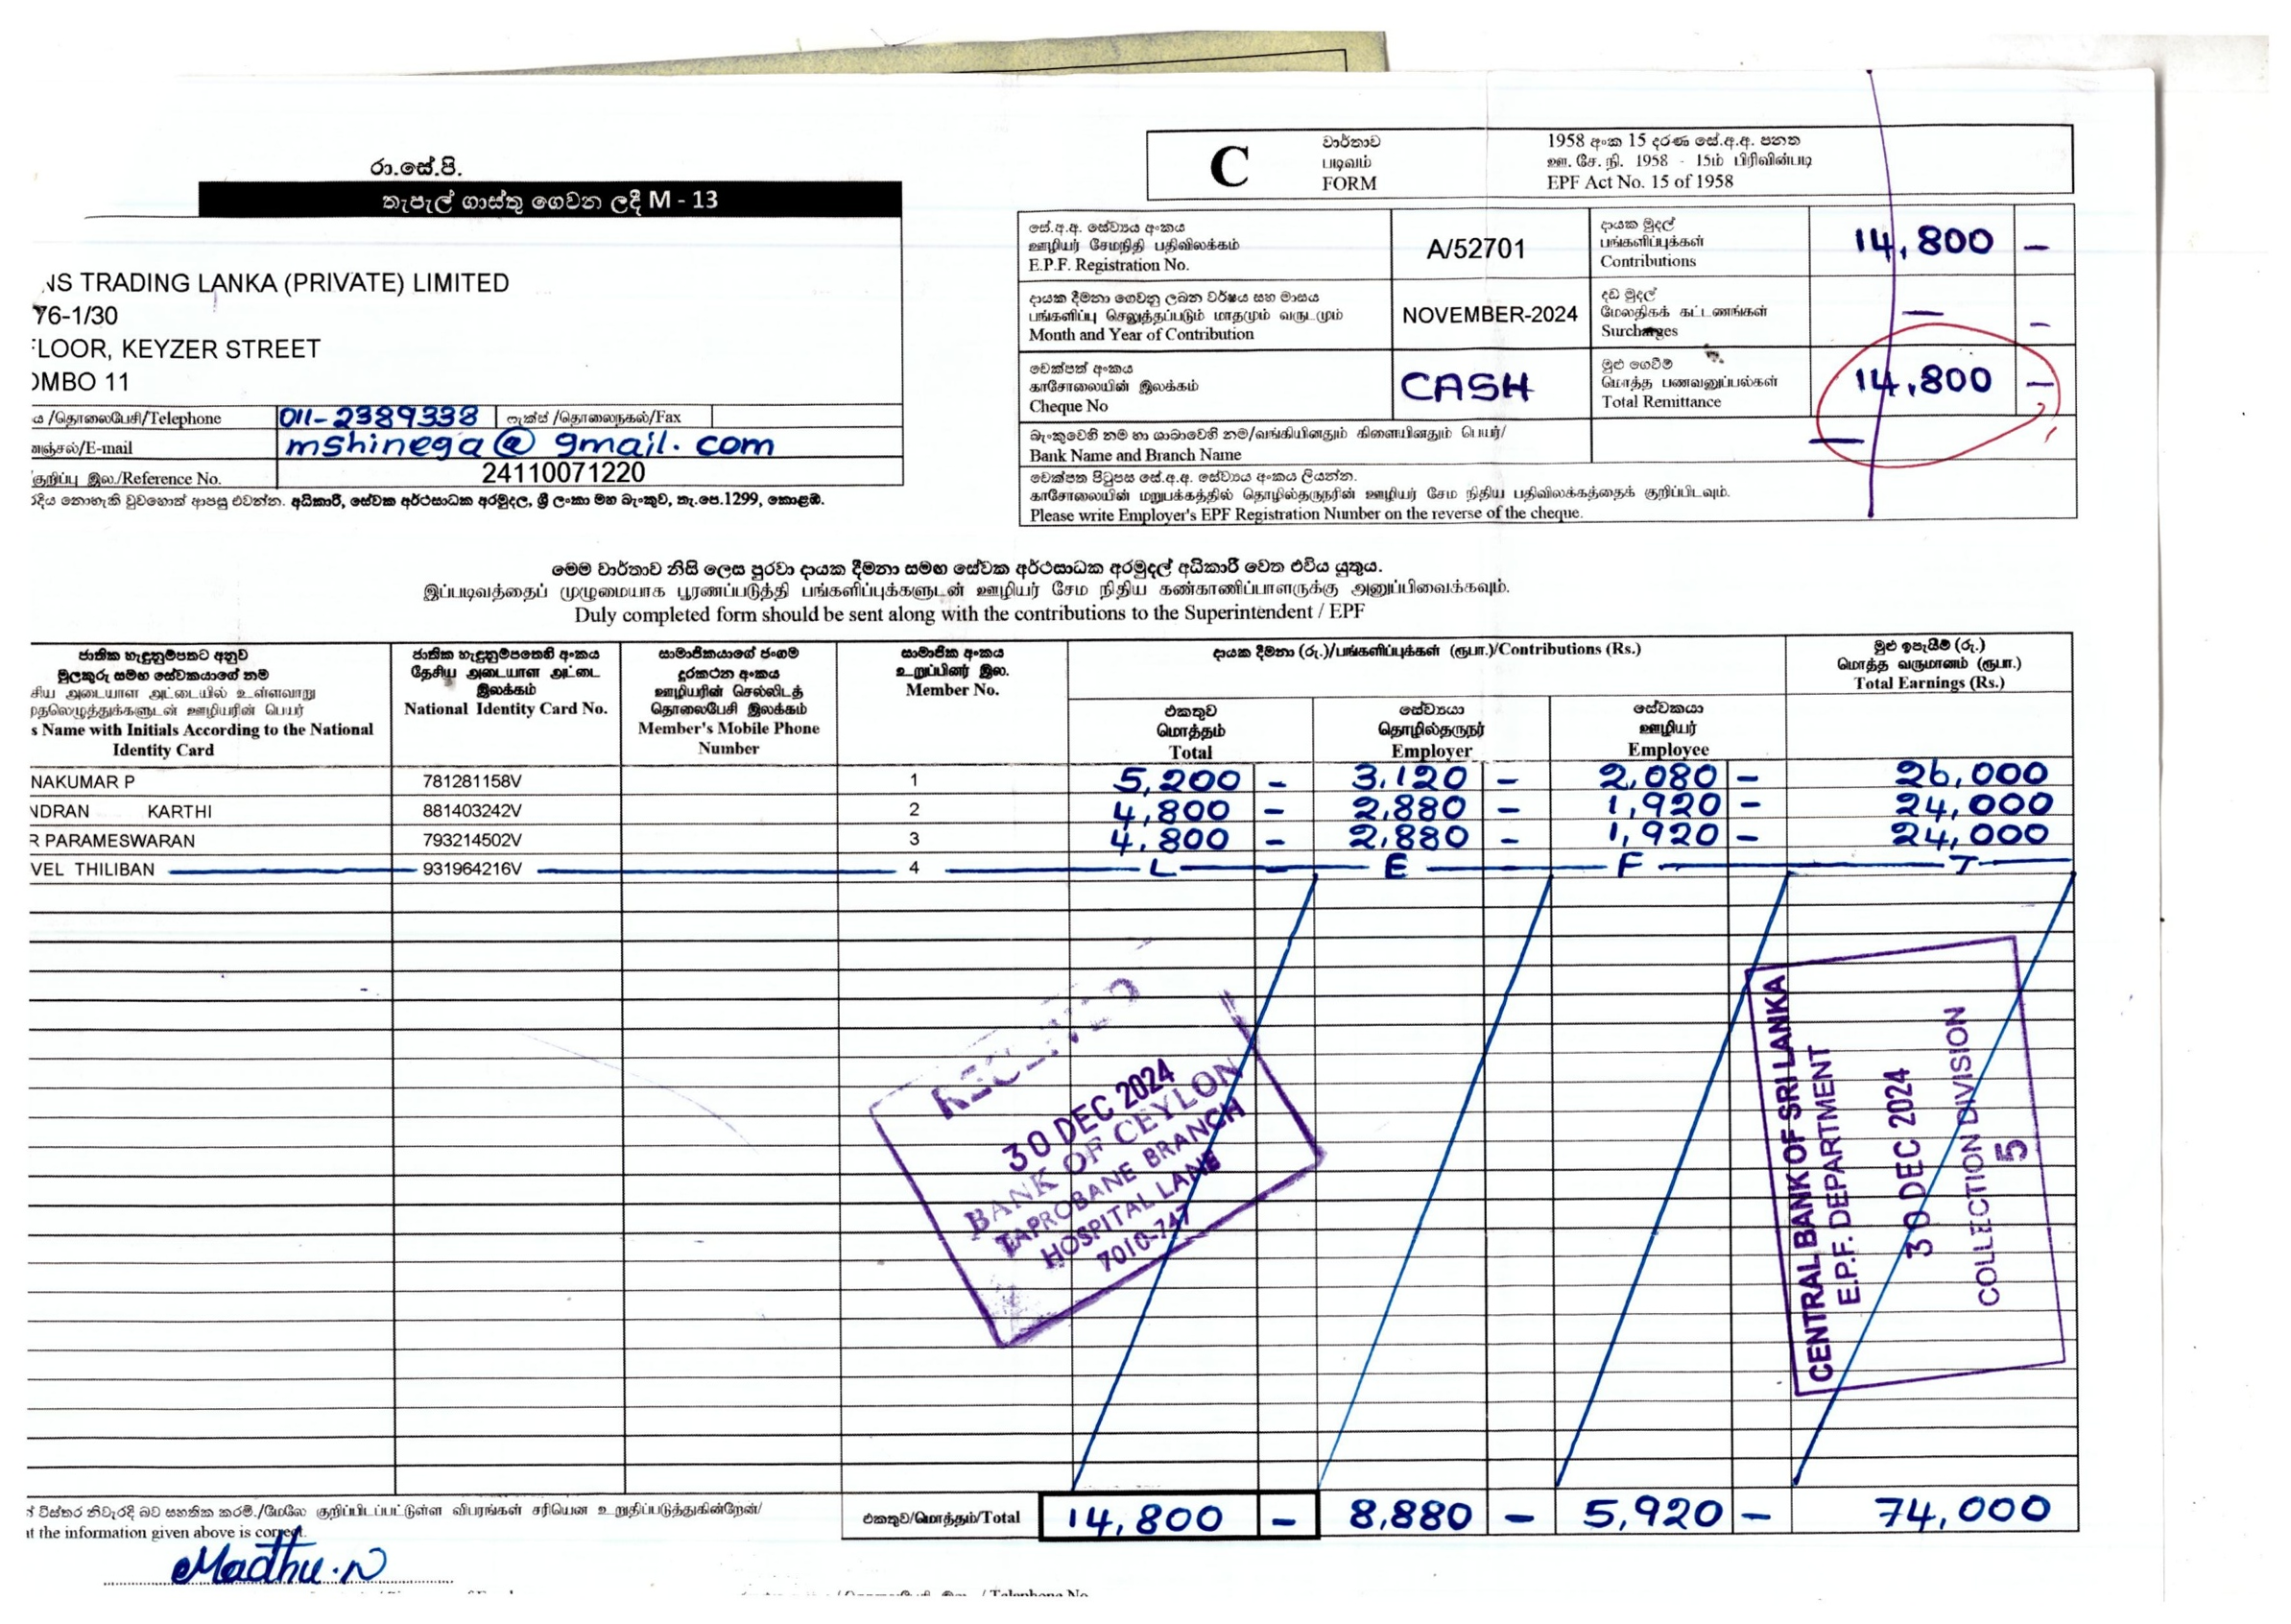 රා.සේ.පි.
තැපැල් ගාස්තු ගෙවන ලදී M - 13
NS TRADING LANKA (PRIVATE) LIMITED
76-1/30
FLOOR, KEYZER STREET
OMBO 11
ய /தொலைபேசி/Telephone 011-2389338 ෆැක්ස් /தொலைநகல்/Fax
னஞ்சல்/E-mail mshinega@gmail.com
குறிப்பு இல./Reference No. 24110071220
රදිය නොහැකි වුවහොත් ආපසු එවන්න. අධිකාරී, සේවක අර්ථසාධක අරමුදල, ශ්‍රී ලංකා මහ බැංකුව, තැ.පෙ.1299, කොළඹ.
C
වාර්තාව
படிவம்
FORM
1958 අංක 15 දරණ සේ.අ.අ. පනත
ஊ. சே. நி. 1958 - 15ம் பிரிவின்படி
EPF Act No. 15 of 1958
සේ.අ.අ. සේව්‍යය අංකය
ஊழியர் சேமநிதி பதிவிலக்கம்
E.P.F. Registration No.
A/52701
දායක මුදල්
பங்களிப்புக்கள்
Contributions
14,800 –
දායක දීමනා ගෙවනු ලබන වර්ෂය සහ මාසය
பங்களிப்பு செலுத்தப்படும் மாதமும் வருடமும்
Month and Year of Contribution
NOVEMBER-2024
දඩ මුදල්
மேலதிகக் கட்டணங்கள்
Surcharges
– –
චෙක්පත් අංකය
காசோலையின் இலக்கம்
Cheque No
CASH
මුළු ගෙවීම්
மொத்த பணவனுப்பல்கள்
Total Remittance
14,800 –
බැංකුවෙහි නම හා ශාඛාවෙහි නම/வங்கியினதும் கிளையினதும் பெயர்/
Bank Name and Branch Name
–
චෙක්පත පිටුපස සේ.අ.අ. සේව්‍යය අංකය ලියන්න.
காசோலையின் மறுபக்கத்தில் தொழில்தருநரின் ஊழியர் சேம நிதிய பதிவிலக்கத்தைக் குறிப்பிடவும்.
Please write Employer's EPF Registration Number on the reverse of the cheque.
මෙම වාර්තාව නිසි ලෙස පුරවා දායක දීමනා සමඟ සේවක අර්ථසාධක අරමුදල් අධිකාරී වෙත එවිය යුතුය.
இப்படிவத்தைப் முழுமையாக பூரணப்படுத்தி பங்களிப்புக்களுடன் ஊழியர் சேம நிதிய கண்காணிப்பாளருக்கு அனுப்பிவைக்கவும்.
Duly completed form should be sent along with the contributions to the Superintendent / EPF
ජාතික හැඳුනුම්පතට අනුව
මුලකුරු සමඟ සේවකයාගේ නම
சிய அடையாள அட்டையில் உள்ளவாறு
முதலெழுத்துக்களுடன் ஊழியரின் பெயர்
s Name with Initials According to the National
Identity Card
ජාතික හැඳුනුම්පතෙහි අංකය
தேசிய அடையாள அட்டை
இலக்கம்
National Identity Card No.
සාමාජිකයාගේ ජංගම
දුරකථන අංකය
ஊழியரின் செல்லிடத்
தொலைபேசி இலக்கம்
Member's Mobile Phone
Number
සාමාජික අංකය
உறுப்பினர் இல.
Member No.
දායක දීමනා (රු.)/பங்களிப்புக்கள் (ரூபா.)/Contributions (Rs.)
එකතුව
மொத்தம்
Total
සේව්‍යයා
தொழில்தருநர்
Employer
සේවකයා
ஊழியர்
Employee
මුළු ඉපැයීම් (රු.)
மொத்த வருமானம் (ரூபா.)
Total Earnings (Rs.)
NAKUMAR P 781281158V 1 5,200 – 3,120 – 2,080 – 26,000
NDRAN KARTHI 881403242V 2 4,800 – 2,880 – 1,920 – 24,000
R PARAMESWARAN 793214502V 3 4,800 – 2,880 – 1,920 – 24,000
VEL THILIBAN 931964216V 4 L E F T
RECEIVED
30 DEC 2024
BANK OF CEYLON
TAPROBANE BRANCH
HOSPITAL LANE
7010-747
CENTRAL BANK OF SRI LANKA
E.P.F. DEPARTMENT
30 DEC 2024
COLLECTION DIVISION
5
විස්තර නිවැරදි බව සහතික කරමි./மேலே குறிப்பிடப்பட்டுள்ள விபரங்கள் சரியென உறுதிப்படுத்துகின்றேன்/
t the information given above is correct.
එකතුව/மொத்தம்/Total 14,800 – 8,880 – 5,920 – 74,000
Madhu.N
/ Telephone No